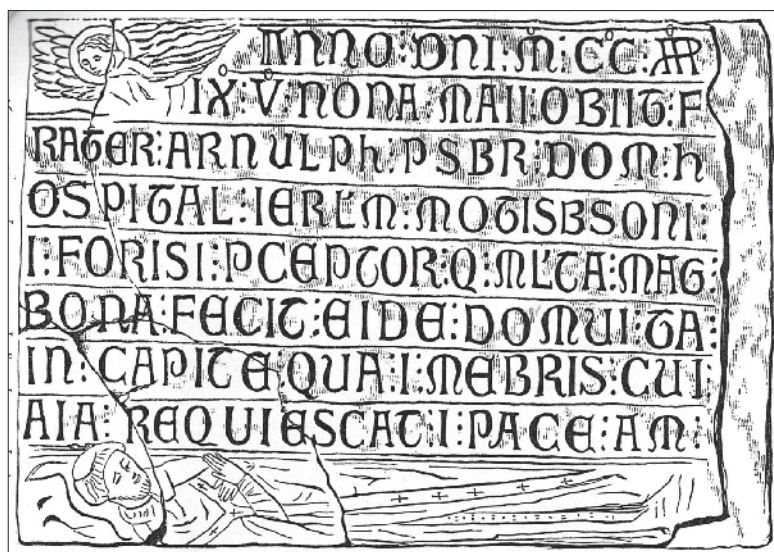 ANNO : DNI : M : CC :
IX : V : NONA MAII : OBIIT : F
RATER : ARNULPH : PSBR : DOM : H
OSPITAL : IERLM : MOTISBSONI :
I : FORISI : PCEPTOR : Q : MLTA : MAG :
BONA : FECIT : EIDE : DOMUI : TA :
IN : CAPITE : QUA : I : MEBRIS : CUI
AIA : REQUIESCAT : I : PACE : AM :